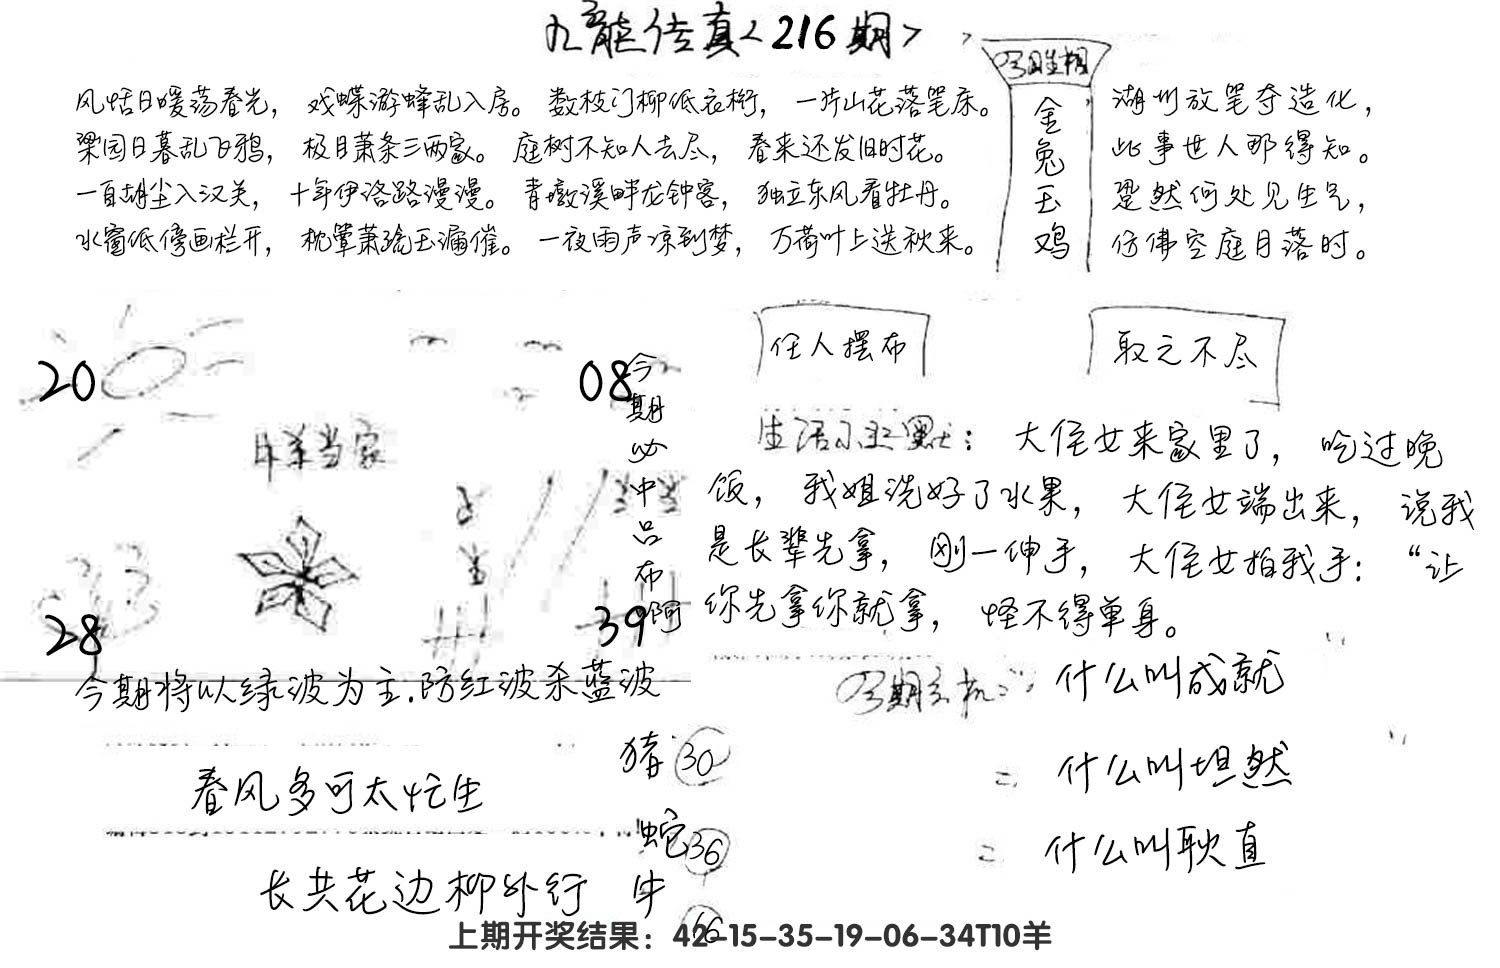 九龙传真<216期>
风恬日暖荡春光，戏蝶游蜂乱入房。数枝门柳低衣桁，一片山花落笔床。
梁园日暮乱飞鸦，极目萧条三两家。庭树不知人去尽，春来还发旧时花。
一自胡尘入汉关，十年伊洛路漫漫。青墩溪畔龙钟客，独立东风看牡丹。
水窗低傍画栏开，枕簟萧疏玉漏催。一夜雨声凉到梦，万荷叶上送秋来。
金兔玉鸡
湖州放笔夺造化，
此事世人那得知。
跫然何处见生气，
仿佛空庭月落时。
20
08
今期必中吕布啊
羊当家
28
39
今期将以绿波为主.防红波杀蓝波
任人摆布
取之不尽
生活小幽默：大侄女来家里了，吃过晚
饭，我姐洗好了水果，大侄女端出来，说我
是长辈先拿，刚一伸手，大侄女拍我手：“让
你先拿你就拿，怪不得单身。
今期玄机：什么叫成就
= 什么叫坦然
= 什么叫耿直
春风多可太忙生
长共花边柳外行
猪 30
蛇 36
牛 16
上期开奖结果：42-15-35-19-06-34T10羊